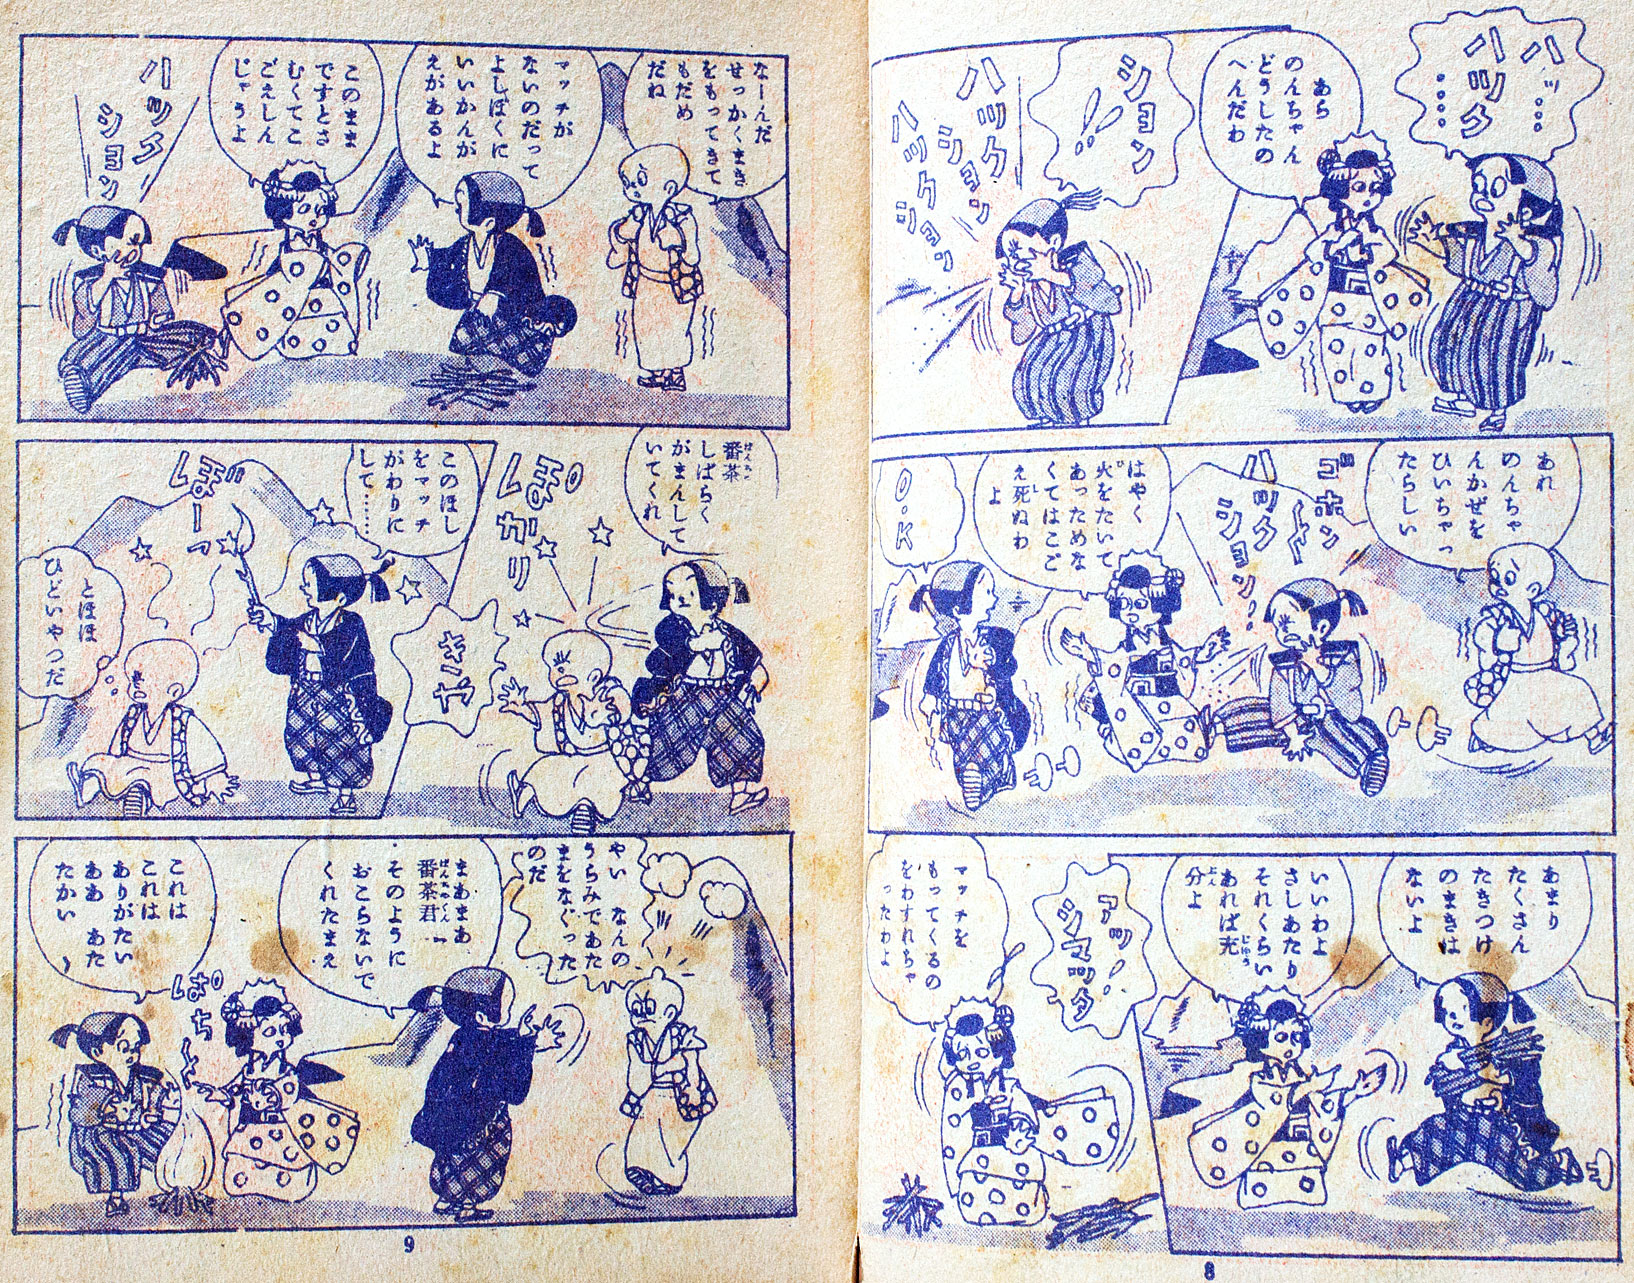 ハッ…
ハツク
……
あら
のんちゃん
どうしたの
へんだわ
ション
!!
ハツクション
ハツクション
あれ
のんちゃ
んかぜを
ひいちゃっ
たらしい
ゴホン
ハツク
ション!
はやく
火をたいて
あっためな
くてはこご
え死ぬわ
よ
O.K
あまり
たくさん
たきつけ
のまきは
ないよ
いいわよ
さしあたり
それくらい
あれば充
分よ
アッ!
シマッタ
マッチを
もってくるの
をわすれちゃ
ったわよ
8
なーんだ
せっかくまき
をもってきて
もだめ
だね
マッチが
ないのだって
よしぼくに
いいかんが
えがあるよ
このまま
ですとさ
むくてこ
ごえしん
じゃうよ
ハツク
ション
番茶
しばらく
がまんして
いてくれ
ぽかり
きゃ
このほし
をマッチ
がわりに
して……
ぼーっ
とほほ
ひどいやつだ
やい なんの
うらみであた
まをなぐった
のだ
まあまあ
番茶君
そのように
おこらないで
くれたまえ
ぱち
これは
これは
ありがたい
ああ あた
たかい
9